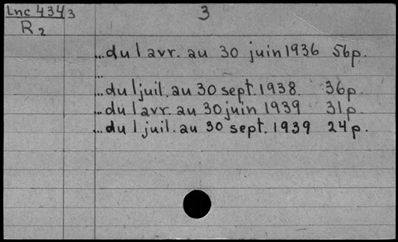 Lnc 4343 3
R2
...du 1 avr. au 30 juin 1936 56p.
...
...du 1 juil. au 30 sept. 1938 36p.
...du 1 avr. au 30 juin 1939 31p
...du 1 juil. au 30 sept. 1939 24p.